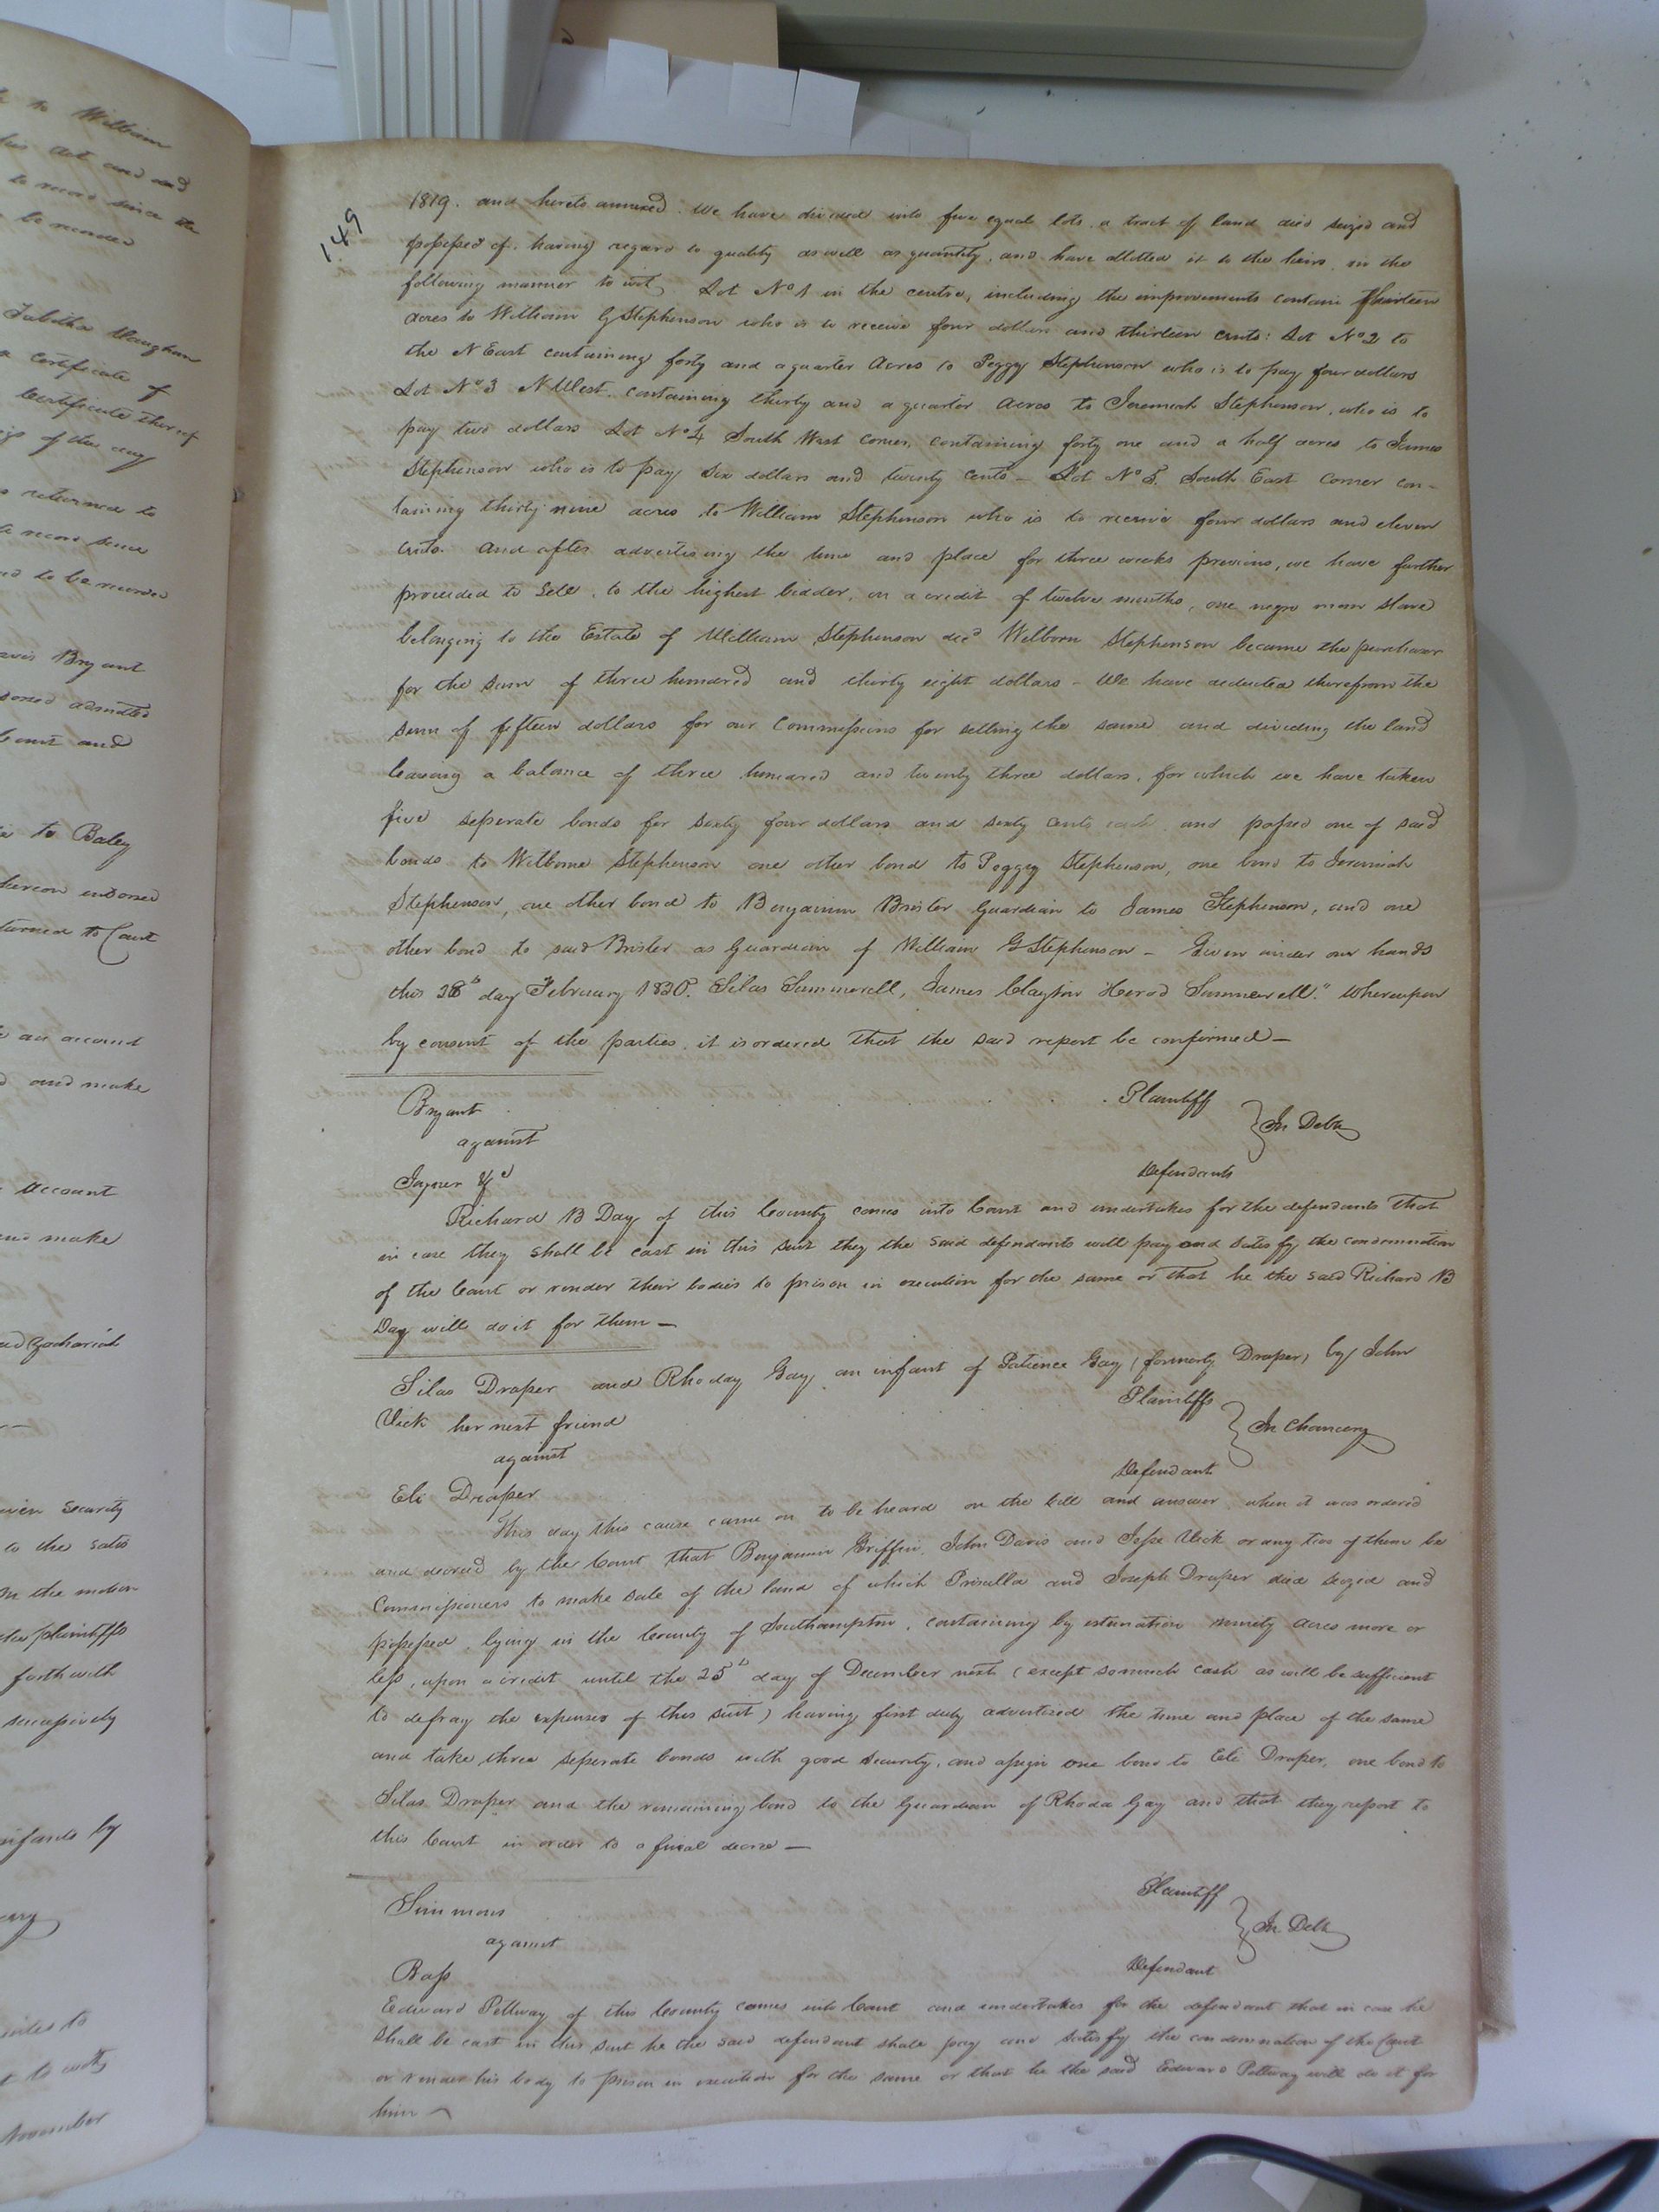 to William
his act and and
to record since the
be recorded
Tabitha Vaughan
a certificate of
Certificate thereof
returned to
record since
and to be recorded
Bryant
admitted
Court and
to Baley
hereon endorsed
turned to Court
an account
and make
account
and make
Zachariah
given security
to the satis
on the motion
the plaintiffs
forthwith
successively
infants by
to
to wit
November
149
1819. and hereto annexed. We have divided into five equal lots a tract of land died seized and
possessed of. having regard to quality as well as quantity, and have allotted it to the heirs in the
following manner to wit, Lot No 1 in the centre, including the improvements contain thirteen
acres to William G Stephenson who is to receive four dollars and thirteen cents: Lot No 2 to
the N East containing forty and a quarter Acres to Peggy Stephenson who is to pay four dollars
Lot No 3 N West. containing thirty and a quarter acres to Jeremiah Stephenson, who is to
pay two dollars Lot No 4 South West corner, containing forty one and a half acres to James
Stephenson who is to pay six dollars and twenty cents – Lot No 5. South East corner con-
taining thirty nine acres to William Stephenson who is to receive four dollars and eleven
cents. and after advertising the time and place for three weeks previous, we have further
proceeded to sell, to the highest bidder, on a credit of twelve months, one negro man slave
belonging to the Estate of William Stephenson decd Welborn Stephenson became the purchaser
for the sum of three hundred and thirty eight dollars – We have deducted therefrom the
sum of fifteen dollars for our Commissions for selling the same and dividing the land
leaving a balance of three hundred and twenty three dollars, for which we have taken
five seperate bonds for sixty four dollars and sixty cents each and passed one of said
bonds to Wilborne Stephenson one other bond to Peggy Stephenson, one bond to Jeremiah
Stephenson, one other bond to Benjamin Brister Guardian to James Stephenson, and one
other bond to said Brister as Guardian of William G Stephenson – Given under our hands
this 28th day February 1820. Silas Summerell, James Clayton Herod Summerell." Whereupon
by consent of the parties it is ordered that the said report be confirmed –
Bryant Plaintiff
against } In Debt
Joyner &c Defendants
Richard B Day of this County comes into Court and undertakes for the defendants that
in case they shall be cast in this suit they the said defendants will pay and satisfy the condemnation
of the Court or render their bodies to prison in execution for the same or that he the said Richard B
Day will do it for them –
Silas Draper and Rhoday Gay an infant of Patience Gay (formerly Draper) by John
Vick her next friend Plaintiffs
against } In Chancery
Eli Draper Defendant
This day this cause came on to be heard on the bill and answer, when it was ordered
and decreed by the Court that Benjamin Griffin, John Davis and Jesse Vick or any two of them be
Commissioners to make sale of the land of which Prisulla and Joseph Draper died seized and
possessed, lying in the County of Southampton, containing by estimation ninety acres more or
less, upon a credit until the 25th day of December next (except so much cash as will be sufficient
to defray the expenses of this suit) having first duly advertized the time and place of the same
and take three seperate bonds with good security, and assign one bond to Eli Draper, one bond to
Silas Draper and the remaining bond to the Guardian of Rhoda Gay and that they report to
this Court in order to a final decree –
Simmons Plaintiff
against } In Debt
Bass Defendant
Edward Pettway of this County comes into Court and undertakes for the defendant that in case he
shall be cast in this suit he the said defendant shall pay and satisfy the condemnation of the Court
or render his body to prison in execution for the same or that he the said Edward Pettway will do it for
him –